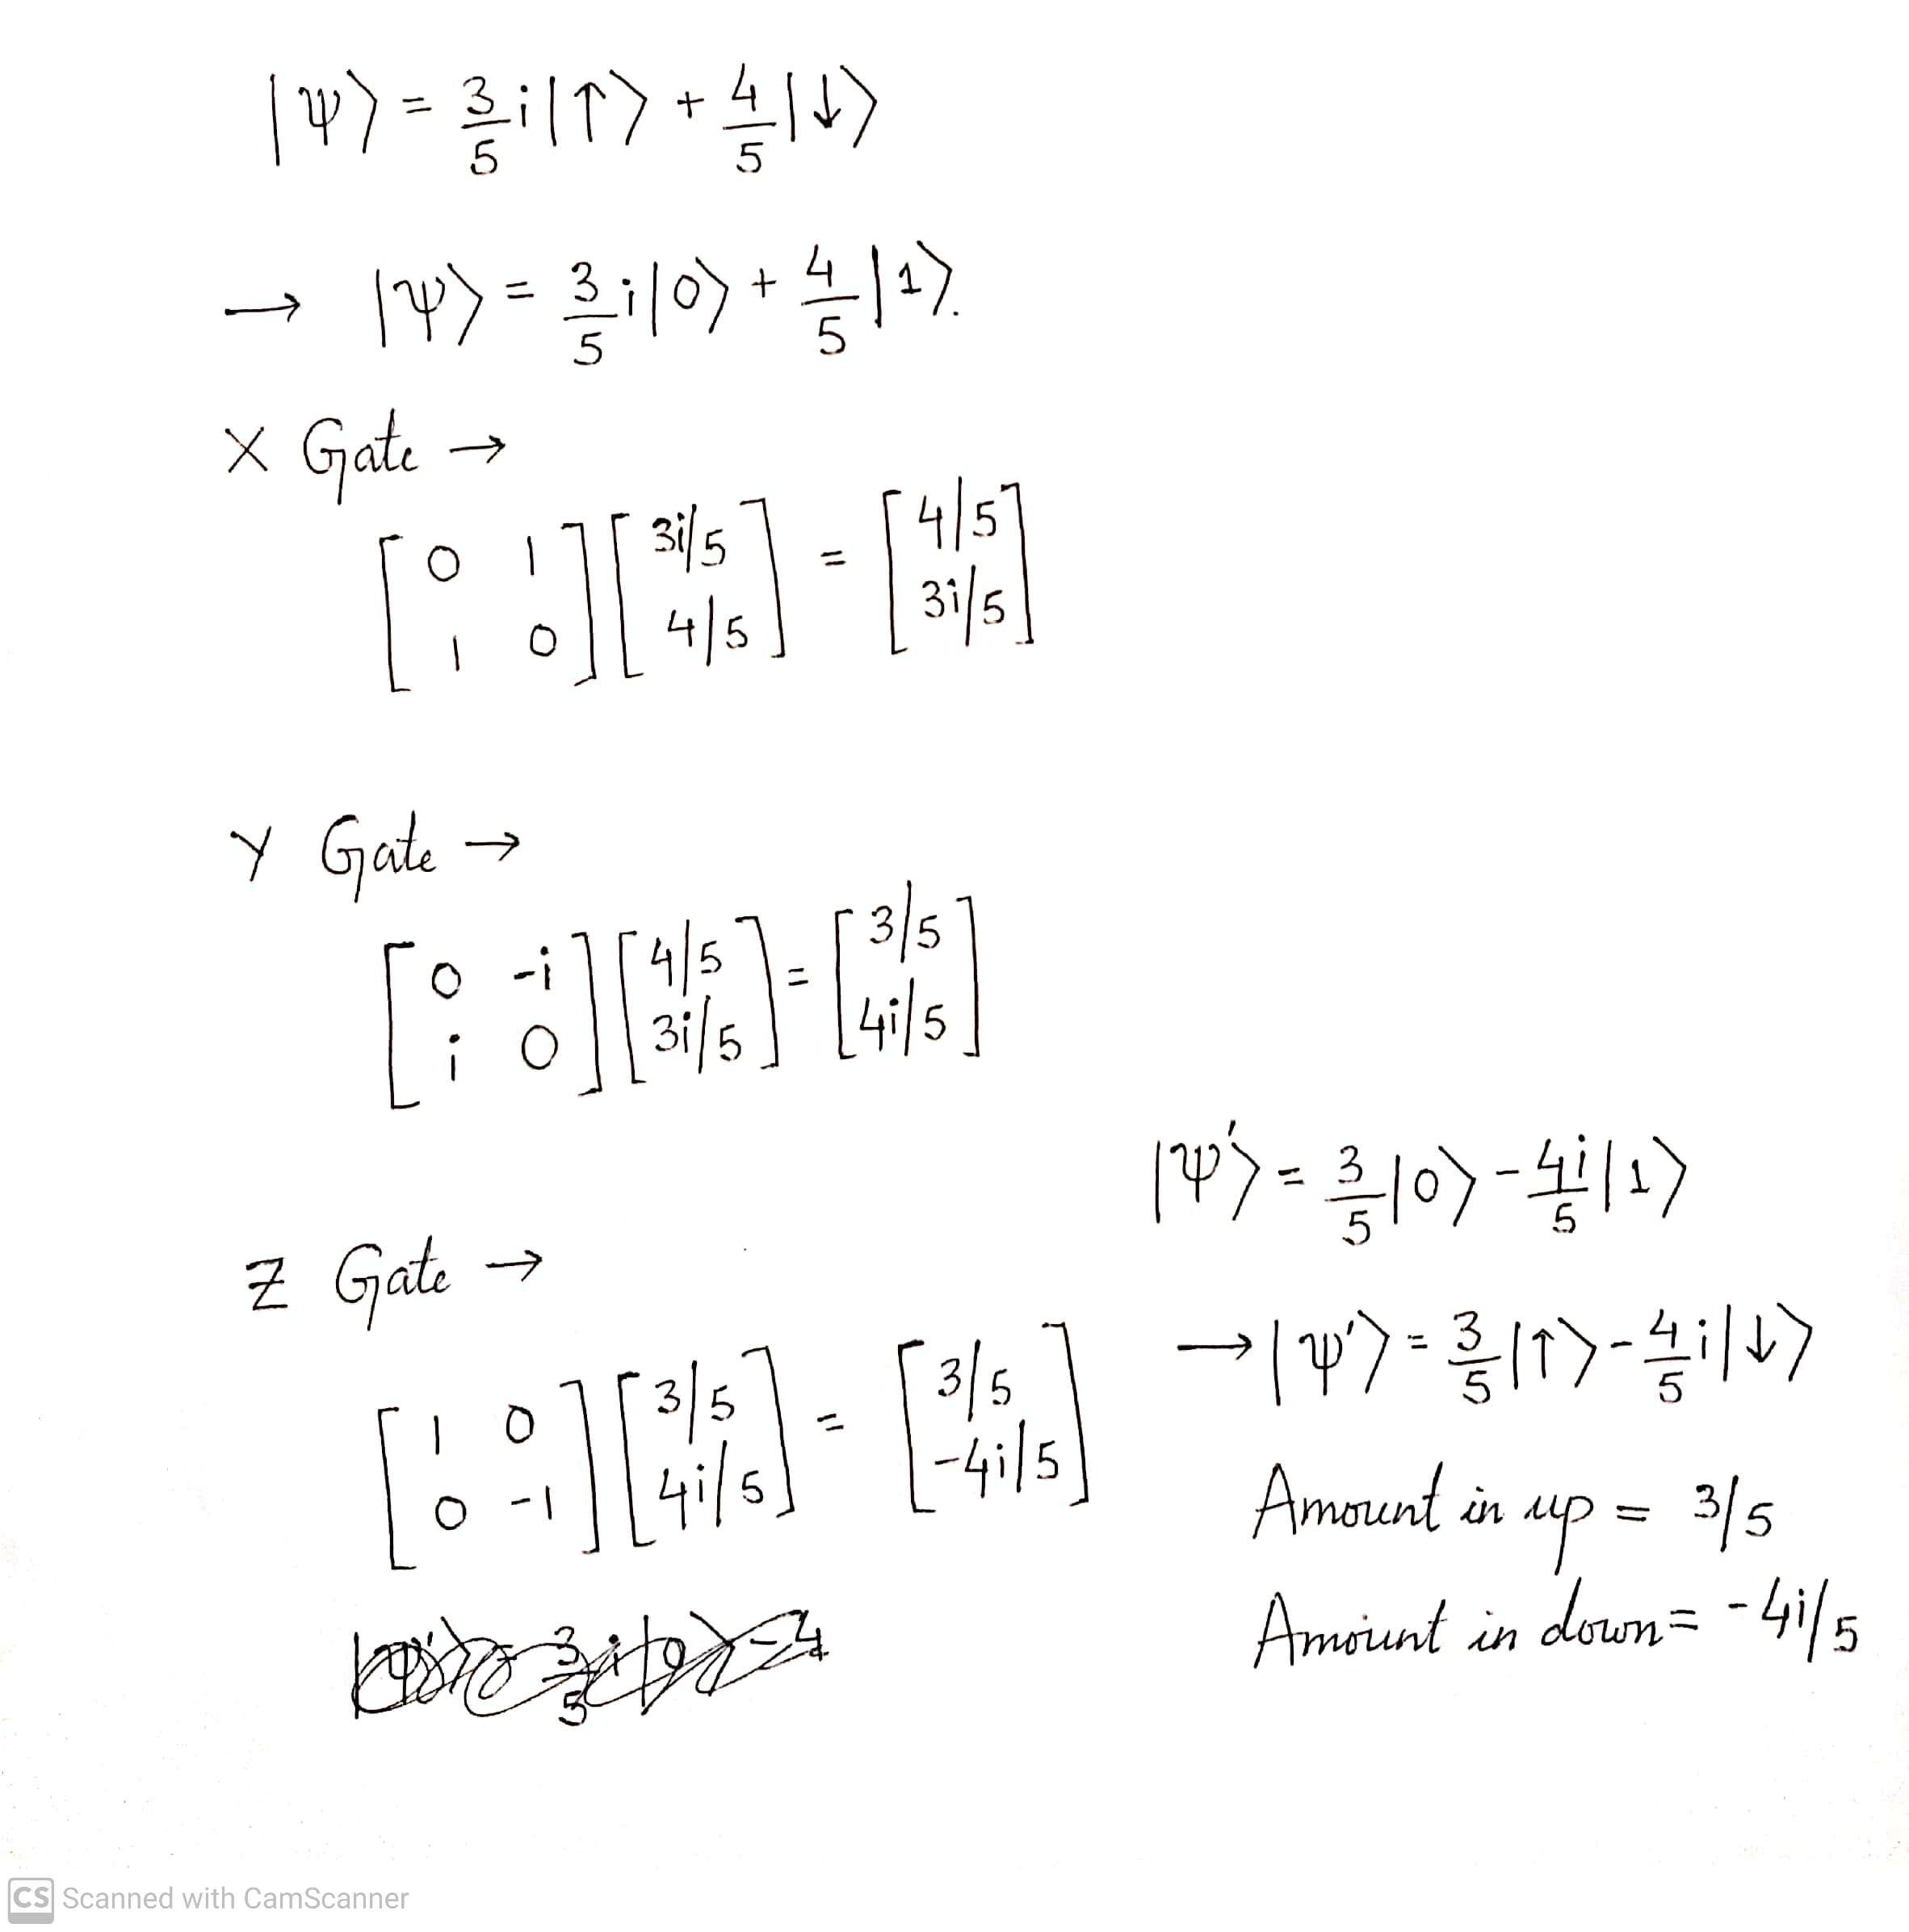 |ψ⟩ = 3/5 i|↑⟩ + 4/5 |↓⟩
→ |ψ⟩ = 3/5 i|0⟩ + 4/5 |1⟩.
X Gate →
[0 1; 1 0] [3i/5; 4/5] = [4/5; 3i/5]
Y Gate →
[0 -i; i 0] [4/5; 3i/5] = [3/5; 4i/5]
Z Gate →
[1 0; 0 -1] [3/5; 4i/5] = [3/5; -4i/5]
|ψ'⟩ = 3/5 i|0⟩ - 4
|ψ'⟩ = 3/5 |0⟩ - 4i/5 |1⟩
→ |ψ'⟩ = 3/5 |↑⟩ - 4/5 i|↓⟩
Amount in up = 3/5
Amount in down = -4i/5
CS Scanned with CamScanner